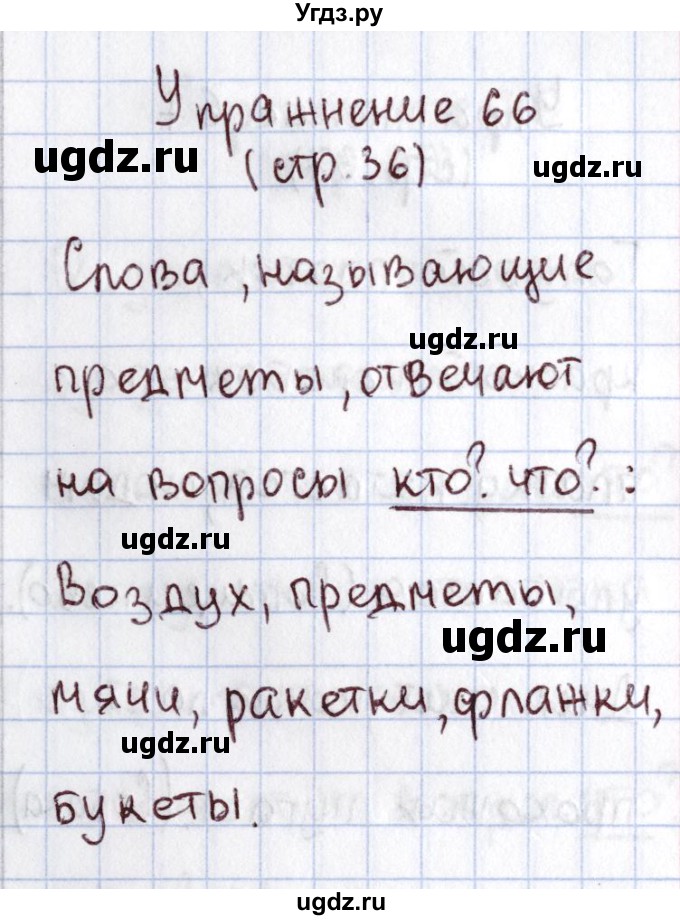 Угдз.ру
Упражнение 66
ugdz.ru
(стр.36)
ugdz.ru
Слова, называющие
ugdz.ru
предметы, отвечают
на вопросы кто? что? :
ugdz.ru
Воздух, предметы,
ugdz.ru
мячи, ракетки, флажки,
ugdz.ru
букеты.
ugdz.ru